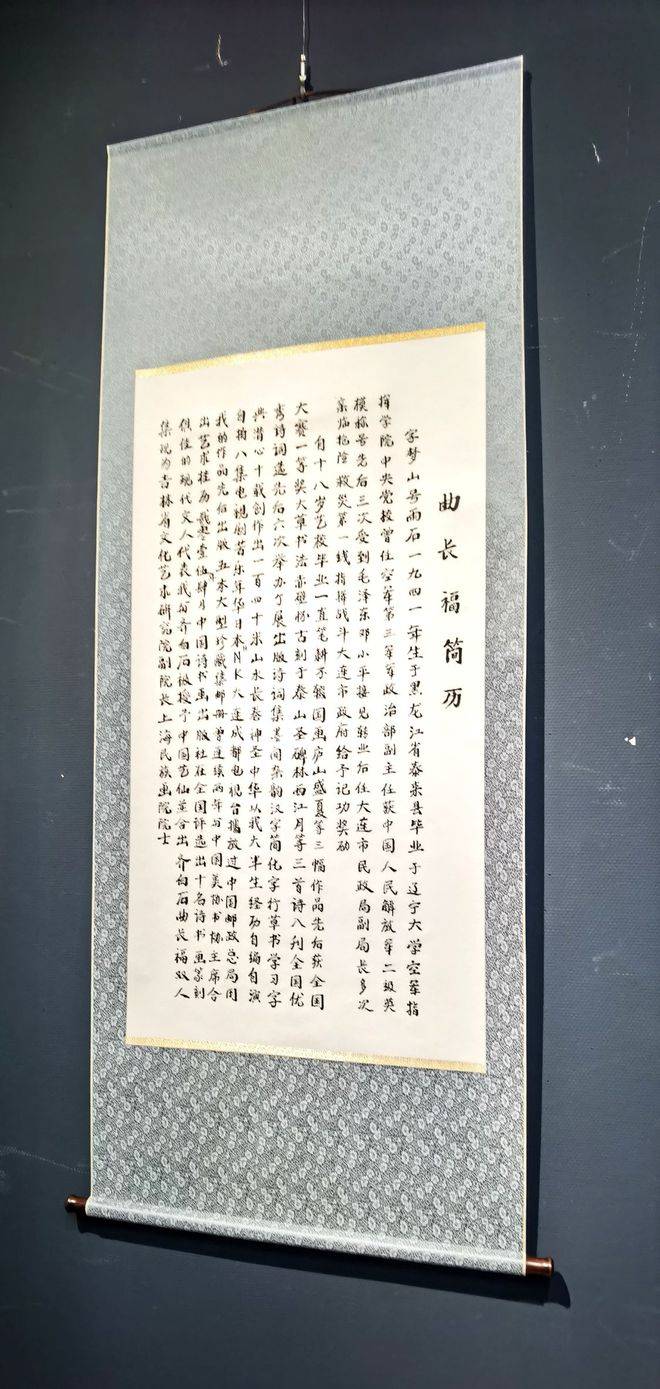 曲长福简历
字梦山号雨石一九四一年生于黑龙江省泰来县毕业于辽宁大学空军指
挥学院中央党校曾任空军第三军军政治部副主任获中国人民解放军二级英
模称号先后三次受到毛泽东邓小平接见转业后任大连市民政局副局长多次
亲临抢险救灾第一线指挥战斗大连市政府给予记功奖励
自十八岁艺校毕业一直笔耕不辍国画庐山盛夏等三幅作品先后获全国
大赛一等奖大草书法赤壁怀古刻于泰山圣碑林西江月等三首诗入刊全国优
秀诗词选先后六次举办个展出版诗词集墨间杂韵汉字简化字行草书学习字
典潜心十载创作出一百四十米山水长卷神圣中华从我大半生经历自编自演
自拍八集电视剧苦乐年华日本NHK大连成都电视台播放过中国邮政总局用
我的作品先后出版五本大型珍藏集邮册曾连续两年与中国美协书协主席合
出艺术挂历贰零壹伍年肆月中国诗书画出版社在全国评选出十名诗书画篆刻
俱佳的现代文人代表我与齐白石被授予中国艺仙并合出齐白石曲长福双人
集现为吉林省文化艺术研究院副院长上海民族画院院士